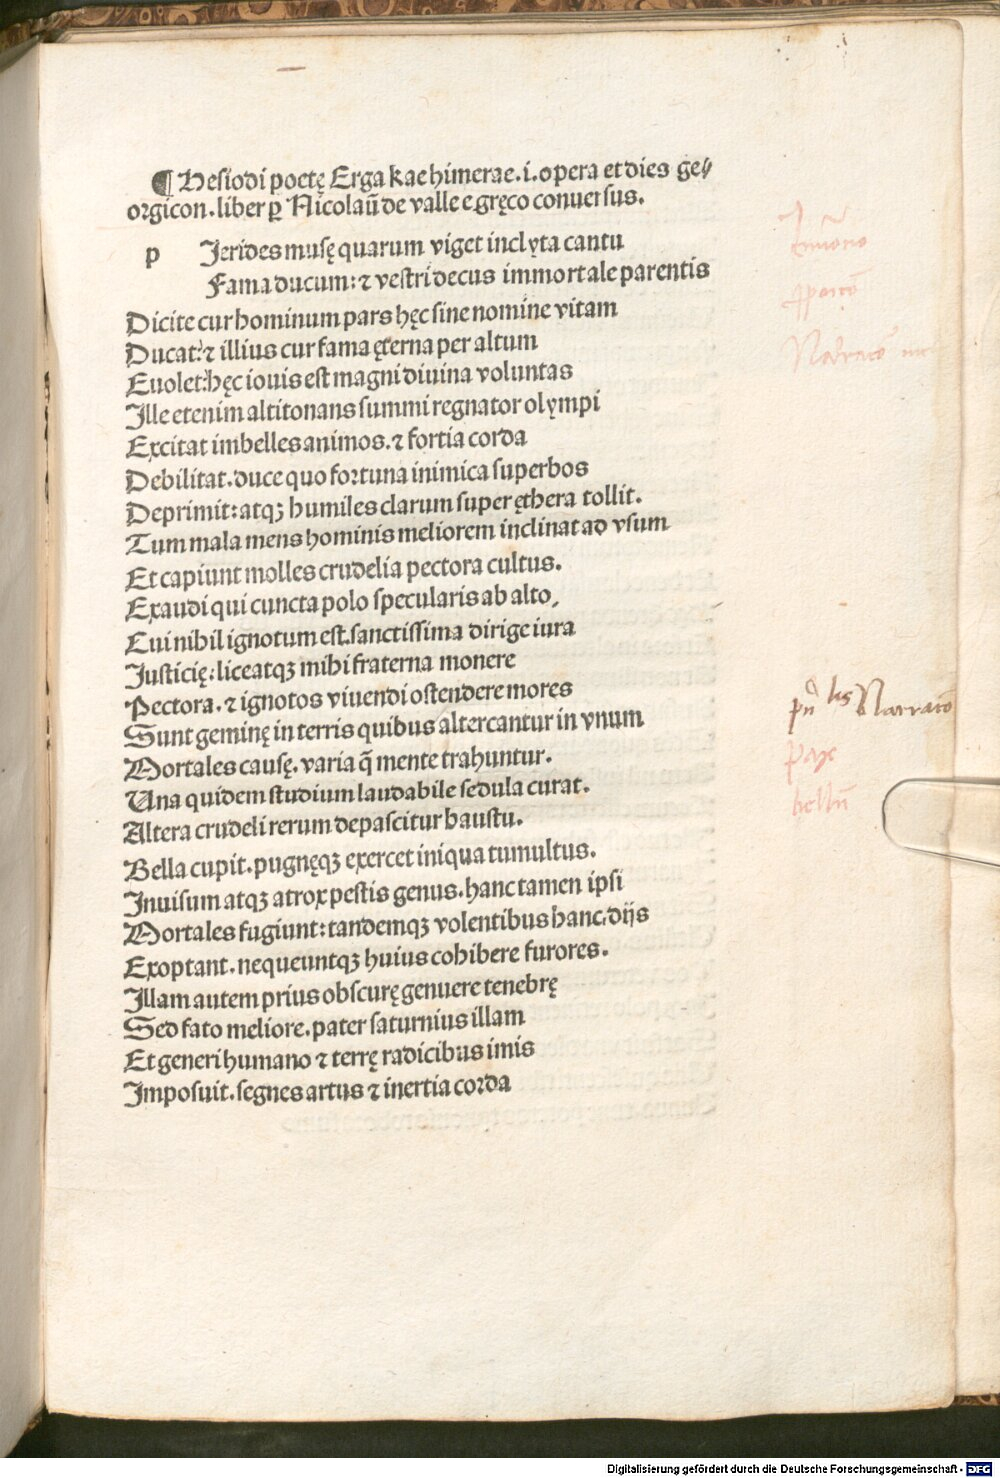 ¶ Hesiodi poetę Erga kae himerae.i.opera et dies ge⸗
orgicon.liber ꝑ Nicolaū de valle e gręco conuersus.
p Ierides musę quarum viget inclyta cantu
Fama ducum:⁊ vestri decus immortale parentis
Dicite cur hominum pars hęc sine nomine vitam
Ducat:⁊ illius cur fama ęterna per altum
Euolet:hęc iouis est magni diuina voluntas
Ille etenim altitonans summi regnator olympi
Excitat imbelles animos.⁊ fortia corda
Debilitat.duce quo fortuna inimica superbos
Deprimit:atqꝫ humiles clarum super ęthera tollit.
Tum mala mens hominis meliorem inclinat ad vsum
Et capiunt molles crudelia pectora cultus.
Exaudi qui cuncta polo specularis ab alto,
Cui nihil ignotum est.sanctissima dirige iura
Iusticię:liceatqꝫ mihi fraterna monere
Pectora.⁊ ignotos viuendi ostendere mores
Sunt geminę in terris quibus altercantur in vnum
Mortales causę.varia q̄ mente trahuntur.
Una quidem studium laudabile sedula curat.
Altera crudeli rerum depascitur haustu.
Bella cupit.pugnęqꝫ exercet iniqua tumultus.
Inuisum atqꝫ atrox pestis genus.hanc tamen ipsi
Mortales fugiunt:tandemqꝫ volentibus hanc.dijs
Exoptant.nequeuntqꝫ huius cohibere furores.
Illam autem prius obscurę genuere tenebrę
Sed fato meliore.pater saturnius illam
Et generi humano ⁊ terrę radicibus imis
Imposuit.segnes artus ⁊ inertia corda
Narracō
pax
bellū
Digitalisierung gefördert durch die Deutsche Forschungsgemeinschaft - DFG